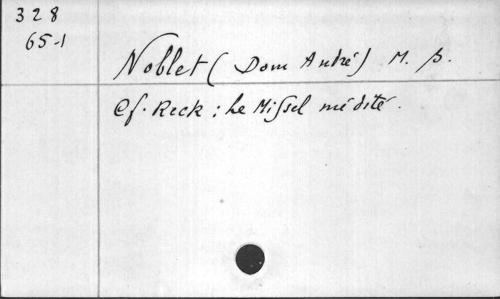 328
65-1
Noblet (Dom André) M. p.
Cf. Reck : Le Missel médité.